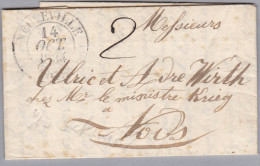 NEUVEVILLE
14
OCT.
2
Messieurs
Ulric et André Wirth
chez Mr le ministre Krieg
à
Nods